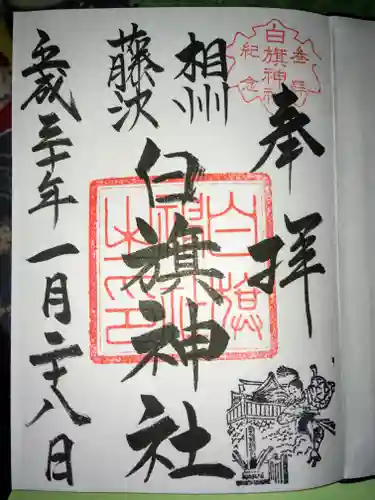 奉拝
参拝
白旗神社
紀念
相州
藤沢
白旗神社
白旗神社之印
平成三十年一月二十八日